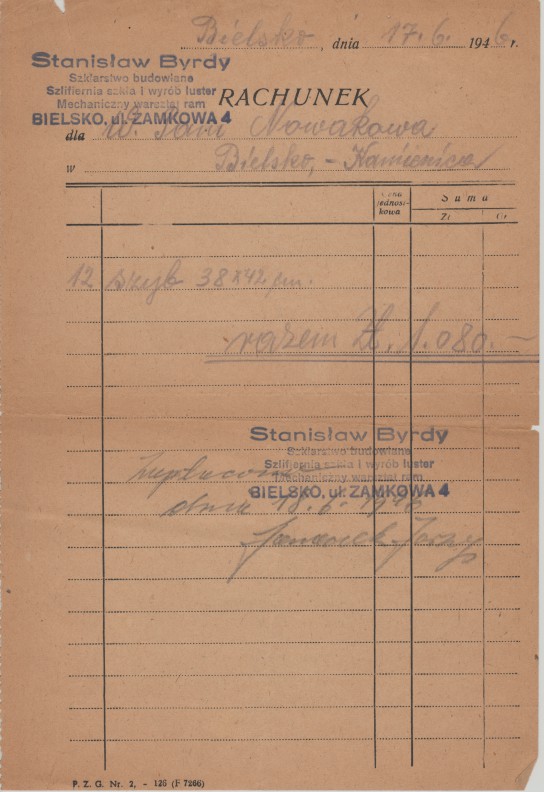 Bielsko, dnia 17. 6. 1946 r.
Stanisław Byrdy
Szklarstwo budowlane
Szlifiernia szkła i wyrób luster
Mechaniczny warsztat ram
BIELSKO, ul. ZAMKOWA 4
RACHUNEK
dla W. Pani Nowakowa
w Bielsko, - Kamienica
Cena jednost-kowa
Suma
Zł Gr
12 szyb 38 x 42 cm.
razem Zł. 1.080.—
Stanisław Byrdy
Szklarstwo budowlane
Szlifiernia szkła i wyrób luster
Mechaniczny warsztat ram
BIELSKO, ul. ZAMKOWA 4
dnia 18. 6. 1946
P. Z. G. Nr. 2, - 126 (F 7266)